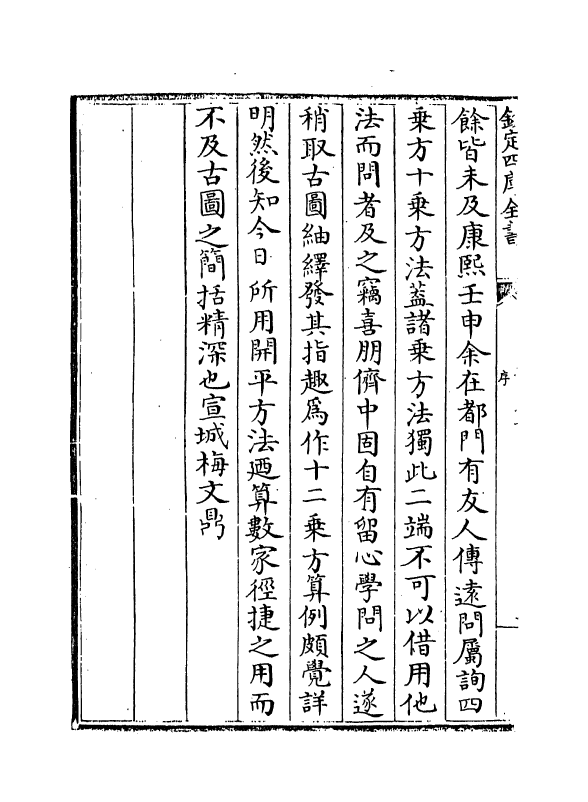 欽定四庫全書
序
餘皆未及康熙壬申余在都門有友人傳遠問屬詢四
乗方十乗方法蓋諸乗方法獨此二端不可以借用他
法而問者及之竊喜朋儕中固自有留心學問之人遂
稍取古圖紬繹發其指趣爲作十二乗方算例頗覺詳
明然後知今日所用開平方法廼算數家徑捷之用而
不及古圖之簡括精深也宣城梅文鼎